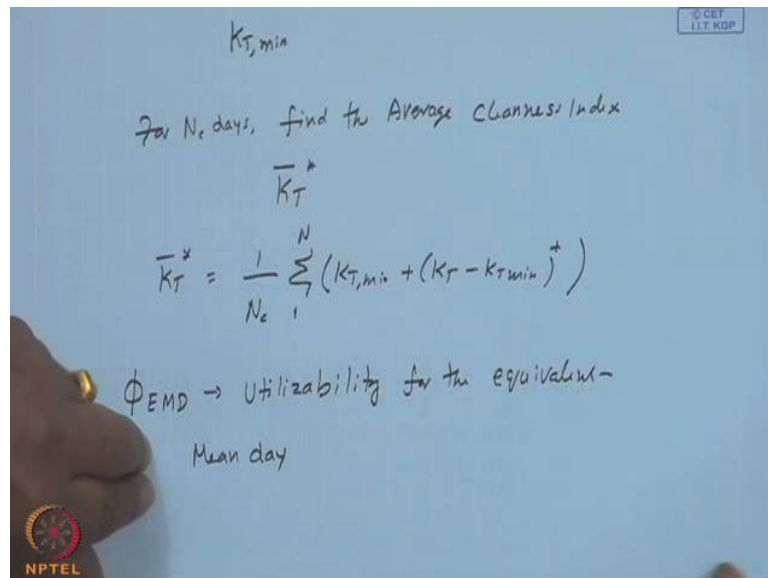 KT,min
© CET
I.I.T. KGP
For Nc days, find the Average Clearness Index
K̄T*
K̄T* = 1/Nc Σ₁ᴺ (KT,min + (KT - KTmin)⁺)
ΦEMD → Utilizability for the equivalent
Mean day
NPTEL